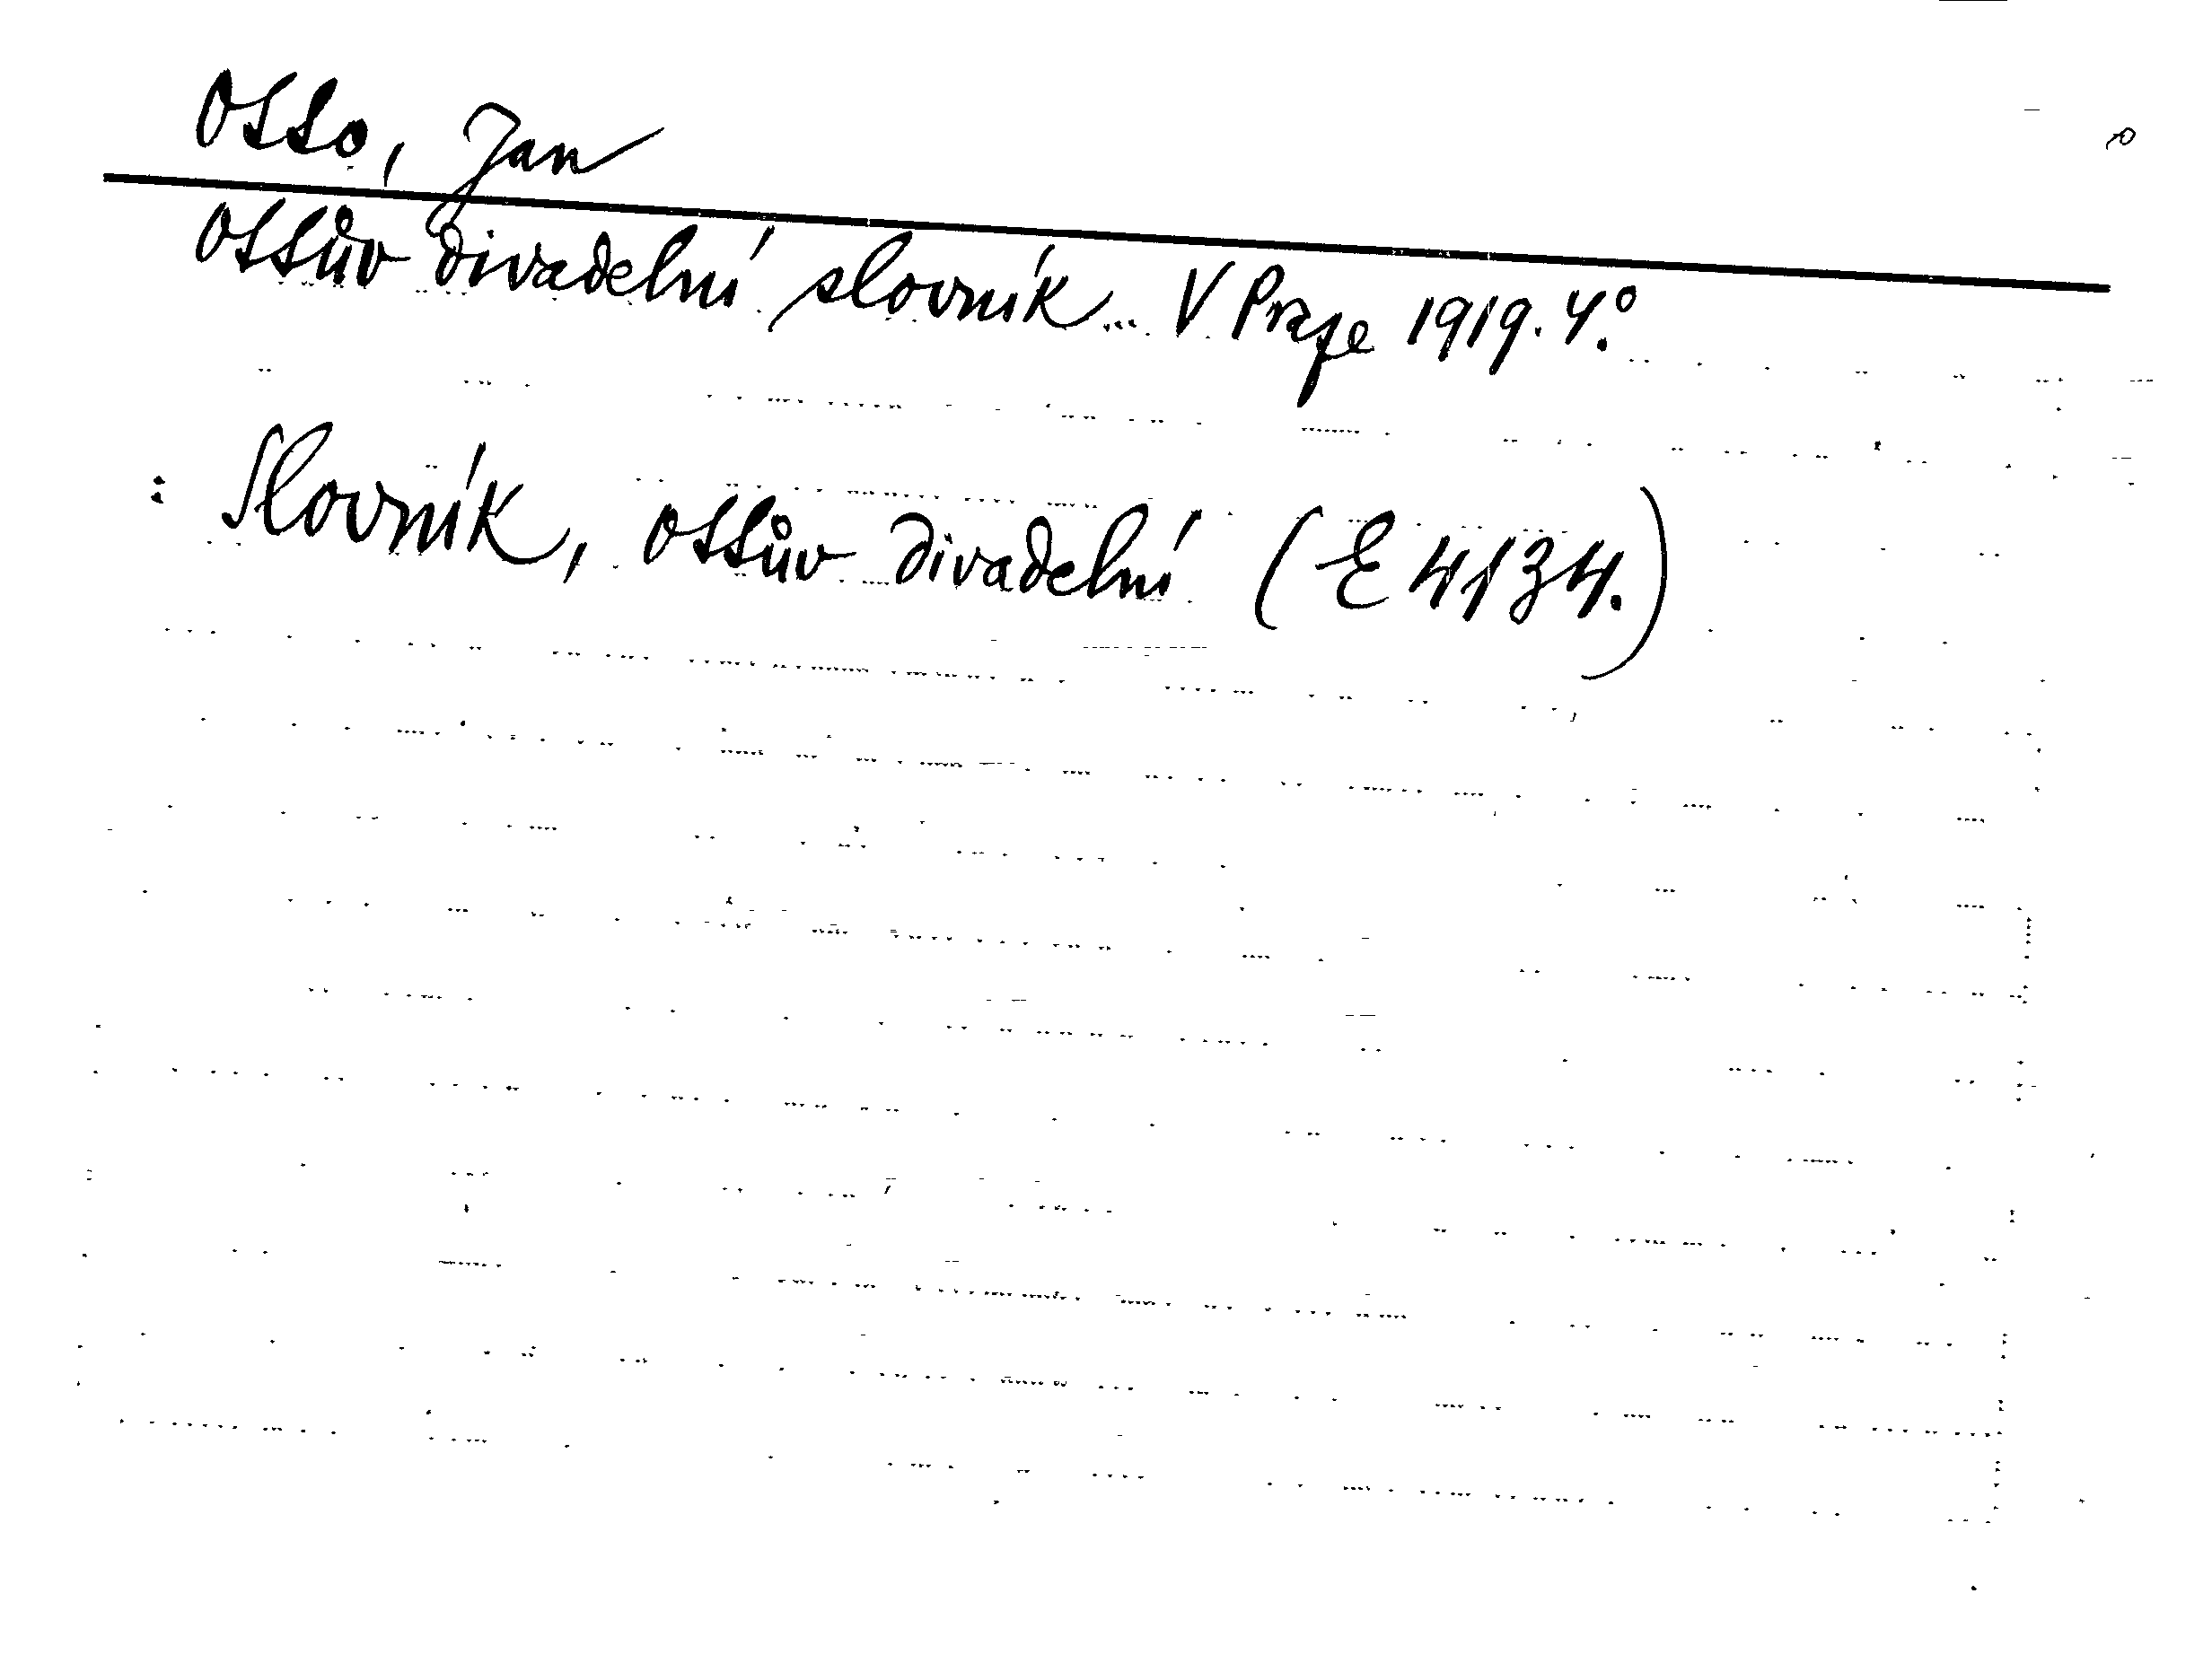 Otto, Jan
Ottův divadelní slovník... V Praze 1919. 4.°
: Slovník, Ottův divadelní (E 4134.)